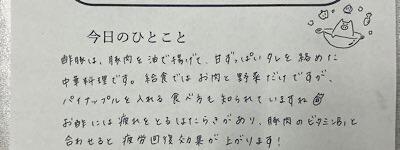 今日のひとこと
酢豚は、豚肉を油で揚げて、甘ずっぱいタレを絡めた
中華料理です。給食ではお肉と野菜だけですが、
パイナップルを入れる食べ方も知られていますね
お酢には疲れをとるはたらきがあり、豚肉のビタミンB₁と
合わせると疲労回復効果が上がります!